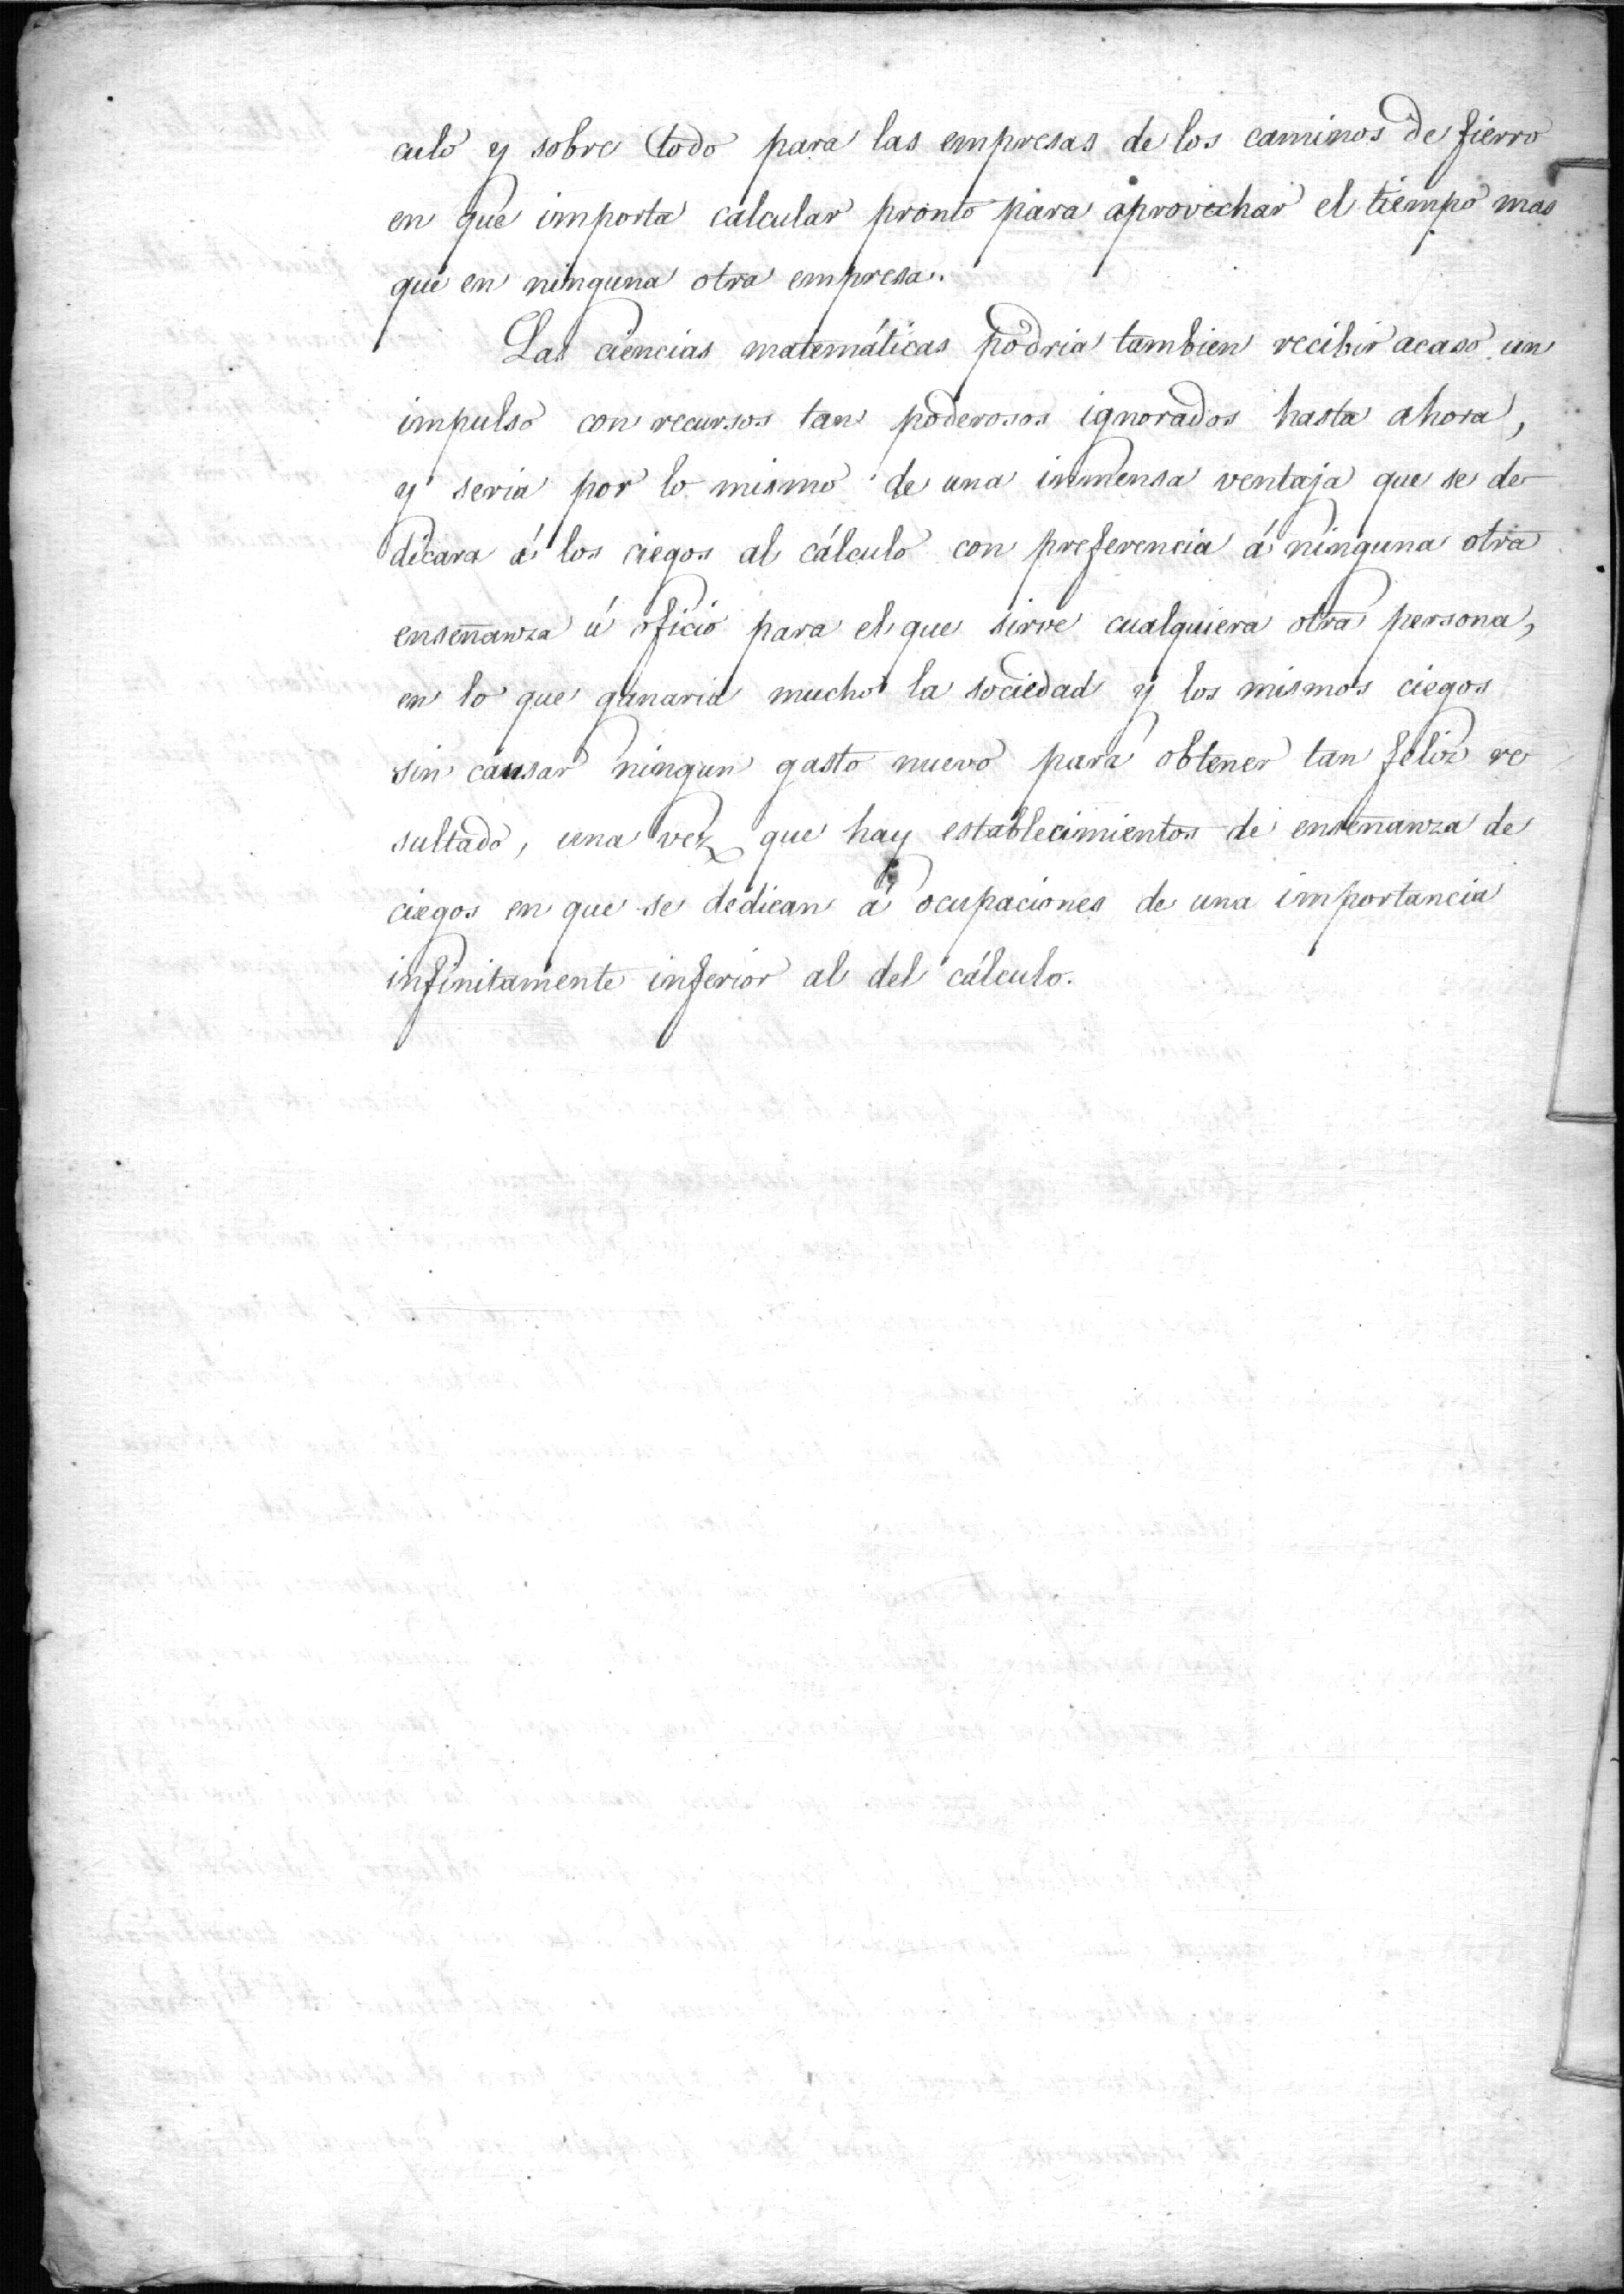 culo y sobre todo para las empresas de los caminos de fierro
en que importa calcular pronto para aprovechar el tiempo mas
que en ninguna otra empresa.
Las ciencias matemáticas podria tambien recibir acaso un
impulso con recursos tan poderosos ignorados hasta ahora,
y seria por lo mismo de una inmensa ventaja que se de
dicara á los ciegos al cálculo con preferencia á ninguna otra
enseñanza ú oficio para el que sirve cualquiera otra persona,
en lo que ganaria mucho la sociedad y los mismos ciegos
sin causar ningun gasto nuevo para obtener tan feliz re
sultado, una vez que hay establecimientos de enseñanza de
ciegos en que se dedican á ocupaciones de una importancia
infinitamente inferior al del cálculo.